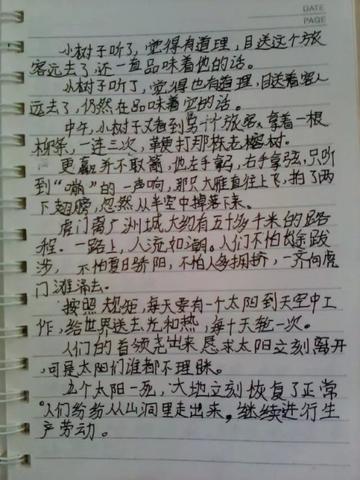 DATE
PAGE
小树子听了,觉得有道理,目送这个旅
客远去了,还一直品味着他的话。
小树子听了,觉得也有道理,目送着客人
远去了,仍然在品味着它的话。
中午,小树子又看到另一个旅客,拿着一根
柳条,一连三次,鞭打那株老榕树。
更羸并不取箭,他左手拿弓,右手拿弦,只听
到"嘣"的一声响,那只大雁直往上飞,拍了两
下翅膀,忽然从半空中掉落下来。
虎门离了州城,大约有五十多千米的路
程。一路上,人流如潮。人们不怕长途跋
涉,不怕夏日骄阳,不怕人多拥挤,一齐向虎
门滩涌去。
按照规矩,每天要有一个太阳到天空中工
作,给世界送去光和热,每十天轮一次。
人们的首领尧出来恳求太阳立刻离开
,可是太阳们谁都不理睬。
五个太阳一死,大地立刻恢复了正常
。人们纷纷从山洞里走出来,继续进行生
产劳动。